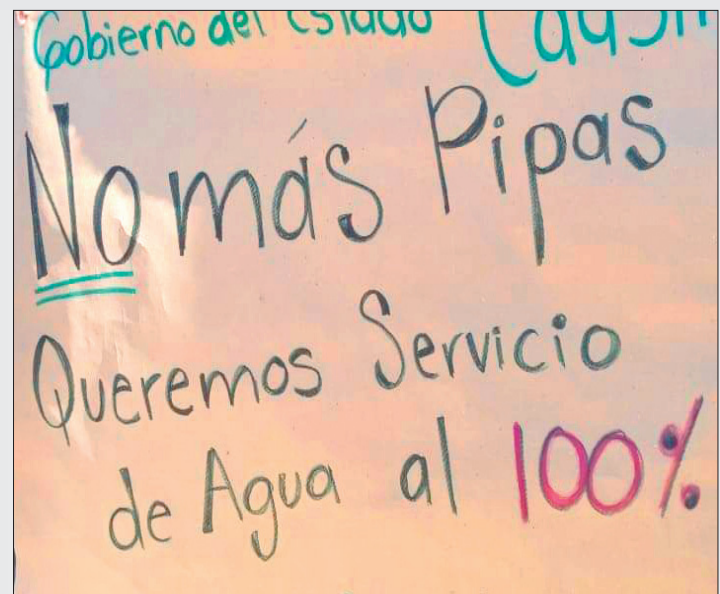 Gobierno del Estado
No más Pipas
Queremos Servicio
de Agua al 100%